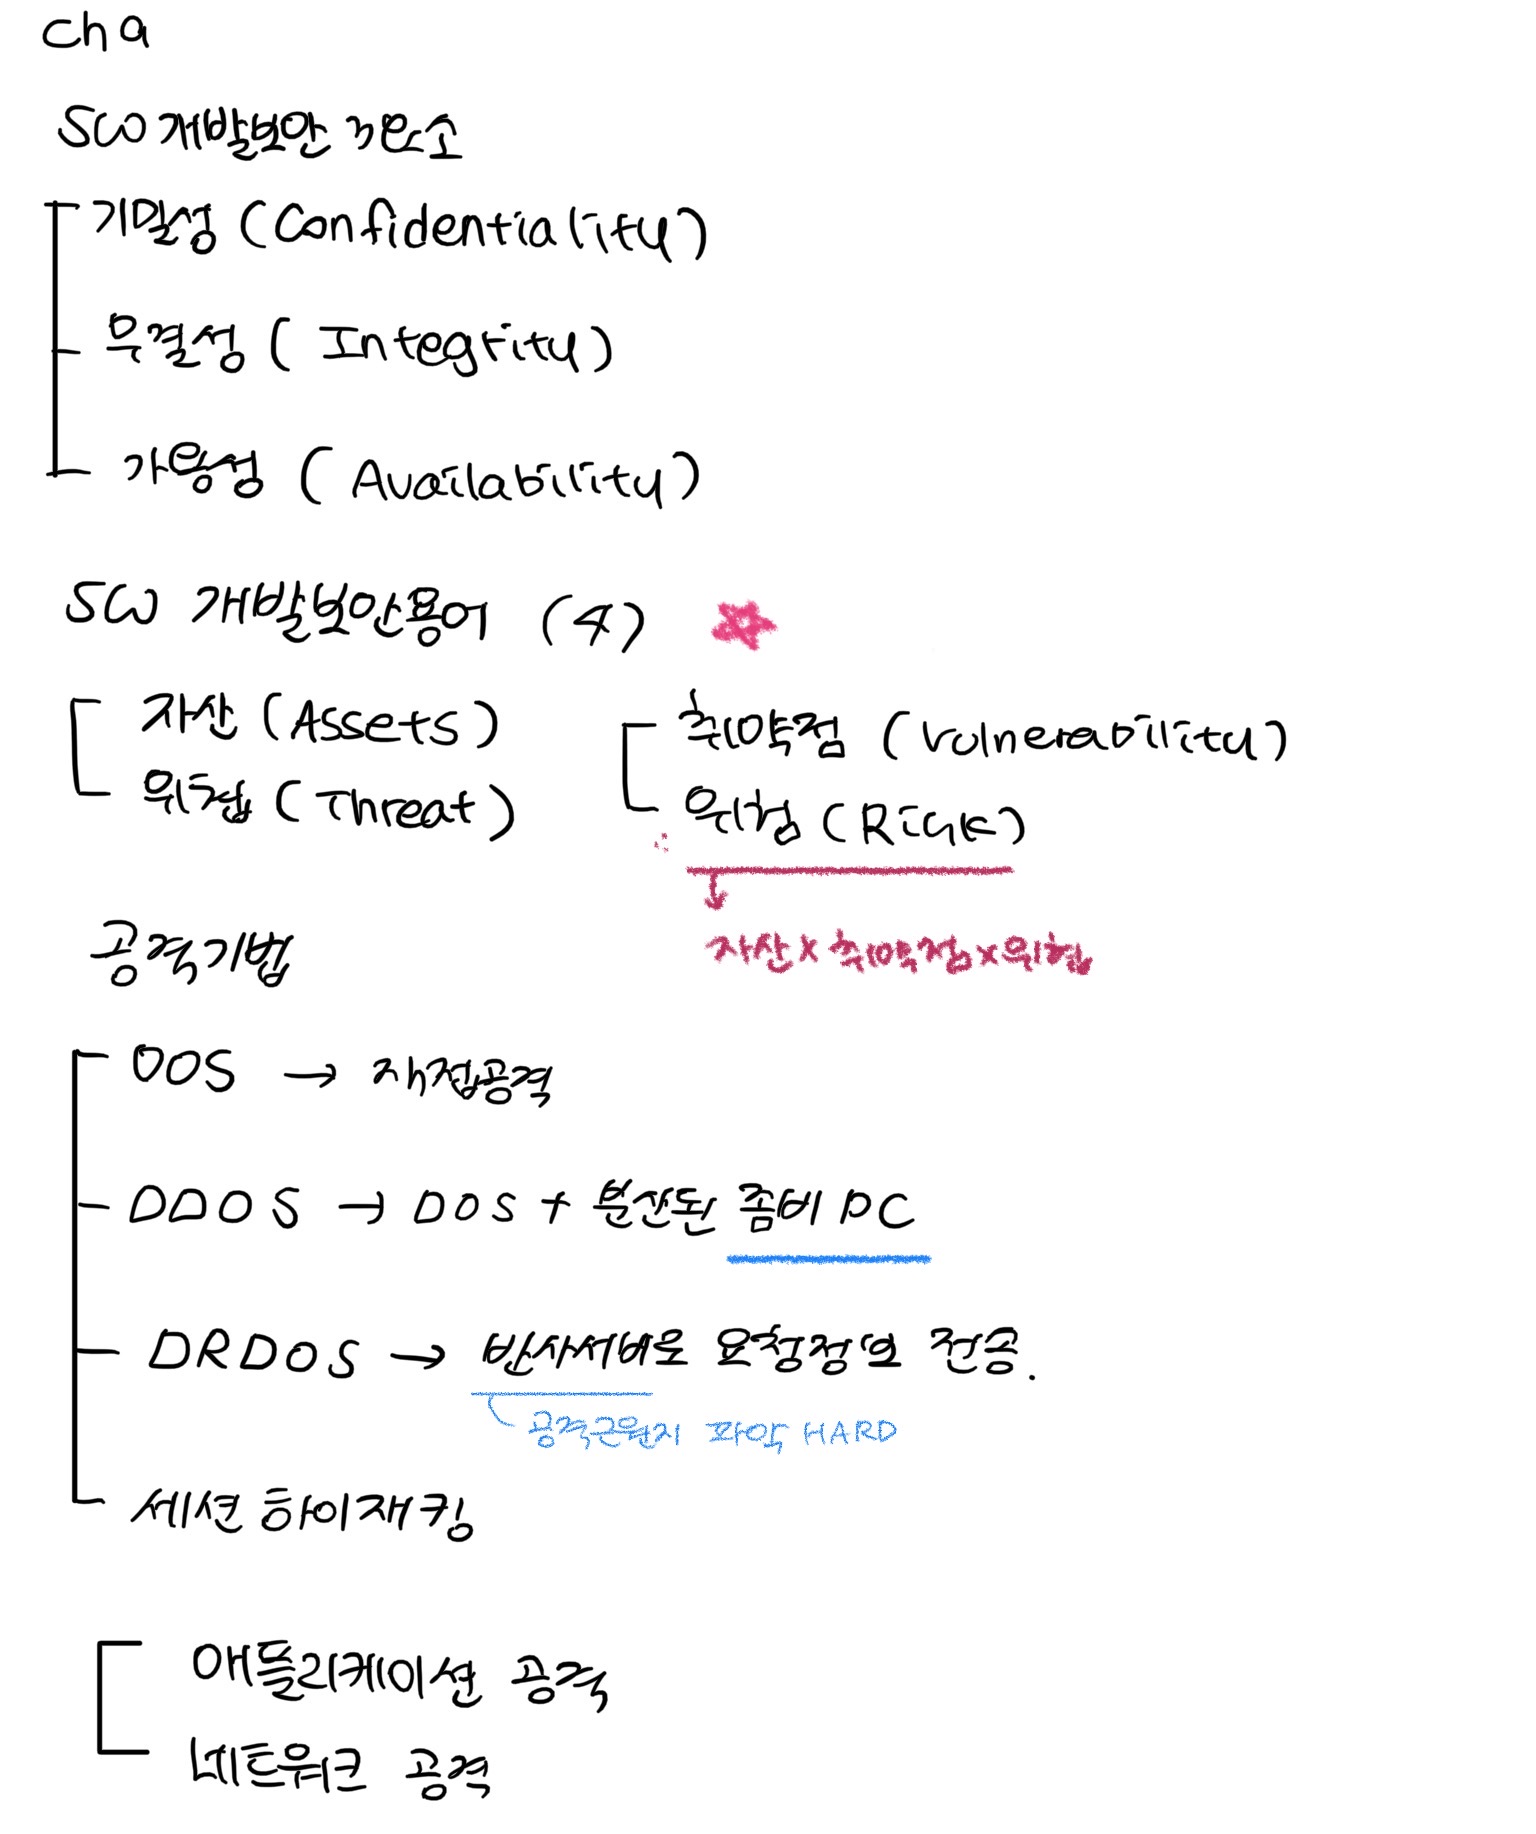 cha
SW 개발보안 3요소
기밀성 (Confidentiality)
무결성 ( Integrity)
가용성 ( Availability)
SW 개발보안용어 (4)
자산 (Assets)
위협 (Threat)
취약점 (Vulnerability)
위험 (Risk)
자산 x 취약점 x 위협
공격기법
DOS → 직접공격
DDOS → DOS + 분산된 좀비 PC
DRDOS → 반사서버로 요청정보 전송.
공격근원지 파악 HARD
세션 하이재킹
애플리케이션 공격
네트워크 공격